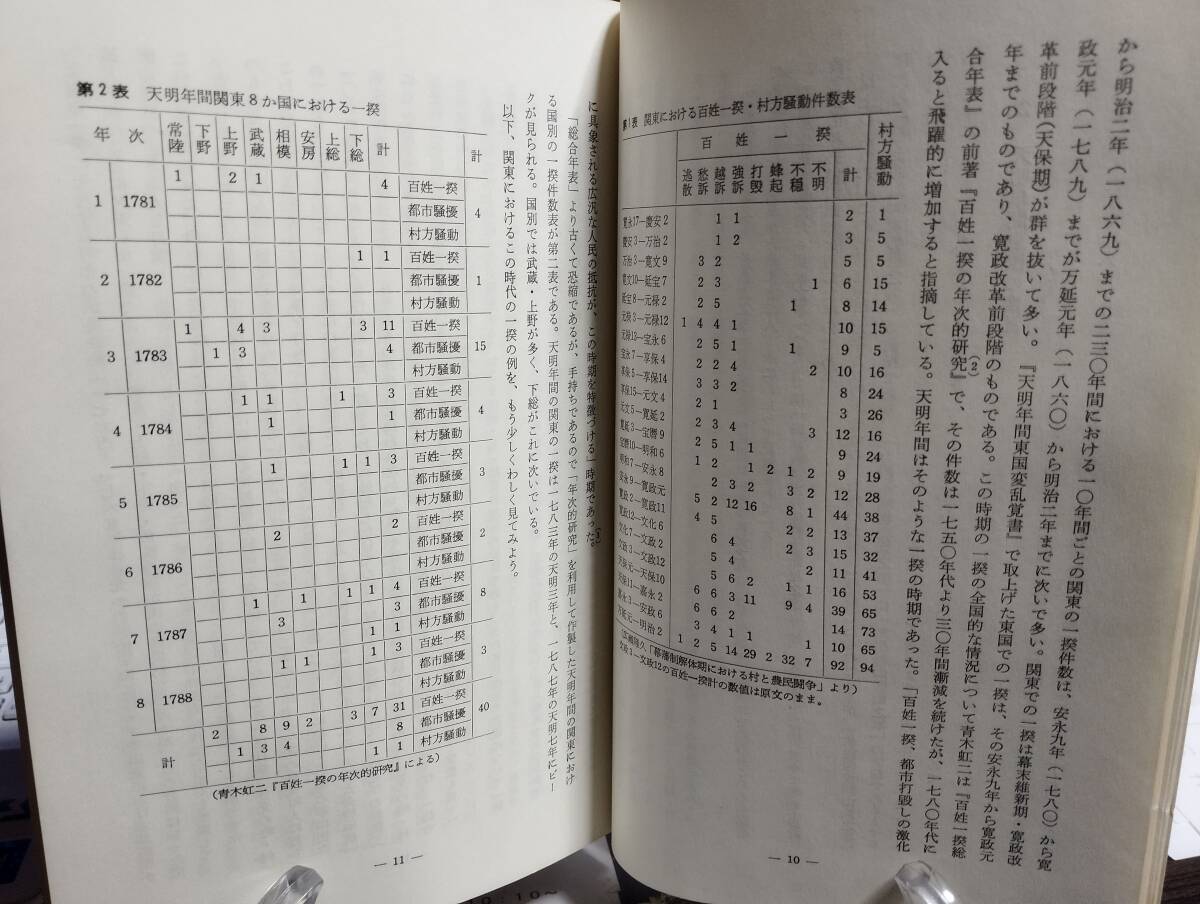 から明治二年(一八六九)までの二三〇年間における一〇年間ごとの関東の一揆件数は、安永九年(一七八〇)から寛
政元年(一七八九)までが万延元年(一八六〇)から明治二年までに次いで多い。関東での一揆は幕末維新期・寛政改
革前段階(天保期)が群を抜いて多い。『天明年間東国変乱覚書』で取上げた東国での一揆は、その安永九年から寛政元
年までのものであり、寛政改革前段階のものである。この時期の一揆の全国的な情況について青木虹二は『百姓一揆総
合年表』の前著『百姓一揆の年次的研究』(2)で、その件数は一七五〇年代より三〇年間漸減を続けたが、一七八〇年代に
入ると飛躍的に増加すると指摘している。天明年間はそのような一揆の時期であった。「百姓一揆、都市打毀しの激化
第1表 関東における百姓一揆・村方騒動件数表
百姓一揆 村方騒動
逃散 愁訴 越訴 強訴 打毀 蜂起 不穏 不明 計
寛永17―慶安2 1 1 2 1
慶安3―万治2 1 2 3 5
万治3―寛文9 3 2 5 5
寛文10―延宝7 2 3 1 6 15
延宝8―元禄2 2 5 1 8 14
元禄3―元禄12 1 4 4 1 10 15
元禄13―宝永6 2 5 1 1 9 5
宝永7―享保4 2 2 4 2 10 16
享保5―享保14 3 3 2 8 24
享保15―元文4 2 1 3 26
元文5―寛延2 2 3 4 3 12 16
寛延3―宝暦9 2 5 1 1 9 24
宝暦10―明和6 1 2 1 2 1 2 9 19
明和7―安永8 2 3 2 3 2 12 28
安永9―寛政元 5 2 12 16 8 1 44 38
寛政2―寛政11 4 5 2 2 13 37
寛政12―文化6 6 4 2 3 15 32
文化7―文政2 5 4 2 11 41
文政3―文政12 5 6 2 1 1 16 53
天保元―天保10 6 6 3 11 9 4 39 65
天保11―嘉永2 6 6 2 14 73
嘉永3―安政6 3 4 1 1 1 10 65
万延元―明治2 1 2 5 14 29 2 32 7 92 94
「幕藩制解体期における村と農民闘争」より)
文政3―文政12の百姓一揆計の数値は原文のまま。
― 10 ―
に具象される広汎な人民の抵抗が、この時期を特徴づける」時期であった。(3)
「総合年表」より古くて恐縮であるが、手持ちであるので「年次的研究」を利用して作製した天明年間の関東におけ
る国別の一揆件数表が第二表である。天明年間の関東の一揆は一七八三年の天明三年と、一七八七年の天明七年にピー
クが見られる。国別では武蔵・上野が多く、下総がこれに次いでいる。
以下、関東におけるこの時代の一揆の例を、もう少しくわしく見てみよう。
第2表 天明年間関東8か国における一揆
年次 常陸 下野 上野 武蔵 相模 安房 上総 下総 計 計
1 1781 1 2 1 4 百姓一揆
都市騒擾 4
村方騒動
2 1782 1 1 百姓一揆
都市騒擾 1
村方騒動
3 1783 1 4 3 3 11 百姓一揆
1 3 4 都市騒擾 15
村方騒動
4 1784 1 1 1 3 百姓一揆
1 1 都市騒擾 4
村方騒動
5 1785 1 1 1 3 百姓一揆
都市騒擾 3
村方騒動
6 1786 2 2 百姓一揆
都市騒擾 2
村方騒動
7 1787 1 1 1 1 4 百姓一揆
3 3 都市騒擾 8
1 1 村方騒動
8 1788 1 1 1 3 百姓一揆
都市騒擾 3
村方騒動
計 2 8 9 2 3 7 31 百姓一揆
1 3 4 8 都市騒擾 40
1 1 村方騒動
(青木虹二『百姓一揆の年次的研究』による)
― 11 ―